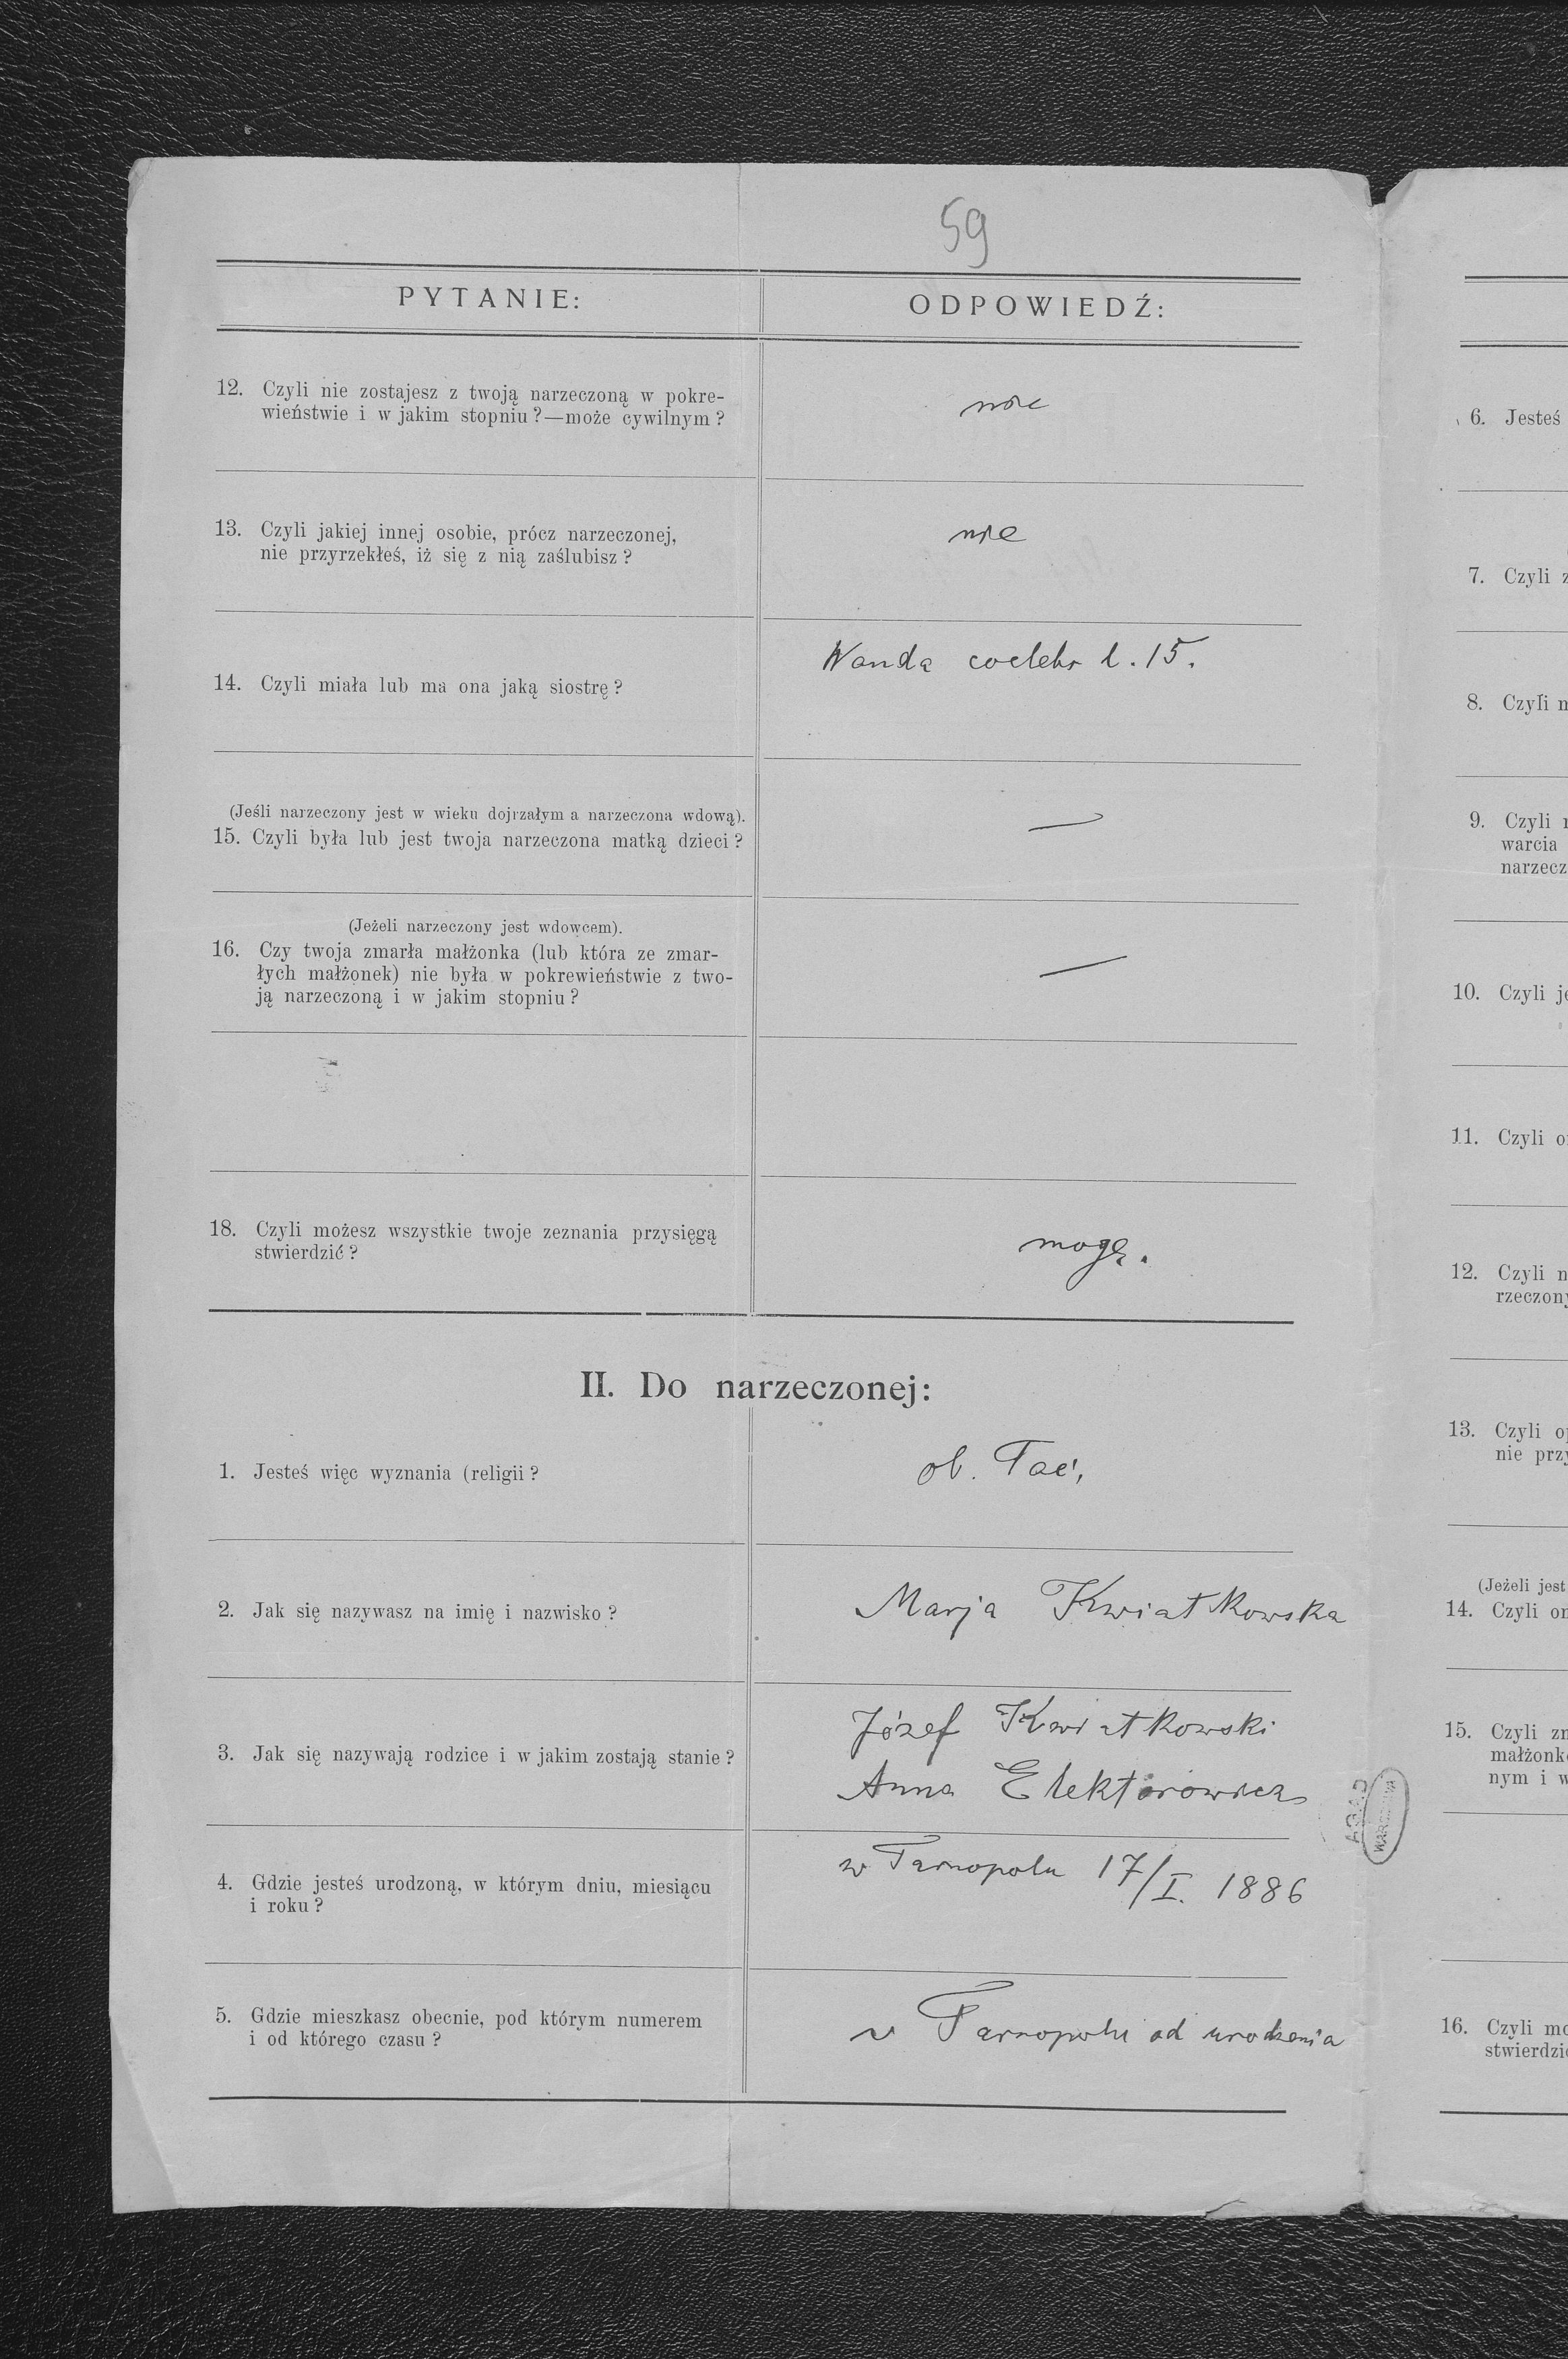 59
PYTANIE:
ODPOWIEDŹ:
12. Czyli nie zostajesz z twoją narzeczoną w pokre-
wieństwie i w jakim stopniu?—może cywilnym?
nie
13. Czyli jakiej innej osobie, prócz narzeczonej,
nie przyrzekłeś, iż się z nią zaślubisz?
nie
14. Czyli miała lub ma ona jaką siostrę?
Wanda l. 15.
(Jeśli narzeczony jest w wieku dojrzałym a narzeczona wdową).
15. Czyli była lub jest twoja narzeczona matką dzieci?
—
(Jeżeli narzeczony jest wdowcem).
16. Czy twoja zmarła małżonka (lub która ze zmar-
łych małżonek) nie była w pokrewieństwie z two-
ją narzeczoną i w jakim stopniu?
—
18. Czyli możesz wszystkie twoje zeznania przysięgą
stwierdzić?
mogę.
II. Do narzeczonej:
1. Jesteś więc wyznania (religii?
ob. łać.
2. Jak się nazywasz na imię i nazwisko?
Marja Kwiatkowska
3. Jak się nazywają rodzice i w jakim zostają stanie?
Józef Kwiatkowski
Anna Elektorowicz
4. Gdzie jesteś urodzoną, w którym dniu, miesiącu
i roku?
w Tarnopolu 17/I. 1886
5. Gdzie mieszkasz obecnie, pod którym numerem
i od którego czasu?
w Tarnopolu od urodzenia
AGAD
WARSZAWA
6. Jesteś
7. Czyli z
8. Czyli
9. Czyli
warcia
narzecz
10. Czyli je
11. Czyli o
12. Czyli n
rzeczony
13. Czyli o
nie przy
(Jeżeli jest
14. Czyli on
15. Czyli zm
małżonk
nym i w
16. Czyli mo
stwierdzi